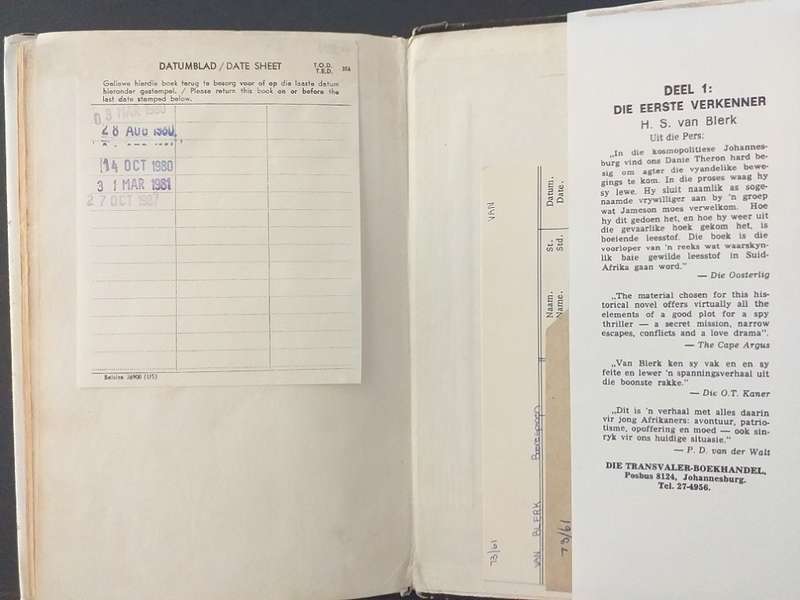 DATUMBLAD / DATE SHEET T.O.D.
T.E.D.
Geliewe hierdie boek terug te besorg voor of op die laaste datum
hieronder gestempel. / Please return this book on or before the
last date stamped below.
MAR 1980
28 AUG 1980
14 OCT 1980
31 MAR 1981
27 OCT 1987
VAN
Datum.
Date.
St.
Std.
Naam.
Name.
VAN BLERK
73/61
73/61
DEEL 1:
DIE EERSTE VERKENNER
H. S. van Blerk
Uit die Pers:
„In die kosmopolitiese Johannes-
burg vind ons Danie Theron hard be-
sig om agter die vyandelike bewe-
gings te kom. In die proses waag hy
sy lewe. Hy sluit naamlik as soge-
naamde vrywilliger aan by 'n groep
wat Jameson moes verwelkom. Hoe
hy dit gedoen het, en hoe hy weer uit
die gevaarlike hoek gekom het, is
boeiende leesstof. Die boek is die
voorloper van 'n reeks wat waarskyn-
lik baie gewilde leesstof in Suid-
Afrika gaan word."
— Die Oosterlig
„The material chosen for this his-
torical novel offers virtually all the
elements of a good plot for a spy
thriller — a secret mission, narrow
escapes, conflicts and a love drama".
— The Cape Argus
„Van Blerk ken sy vak en en sy
feite en lewer 'n spanningsverhaal uit
die boonste rakke."
— Die O.T. Kaner
„Dit is 'n verhaal met alles daarin
vir jong Afrikaners: avontuur, patrio-
tisme, opoffering en moed — ook sin-
ryk vir ons huidige situasie."
— P. D. van der Walt
DIE TRANSVALER-BOEKHANDEL,
Posbus 8124, Johannesburg.
Tel. 27-4956.